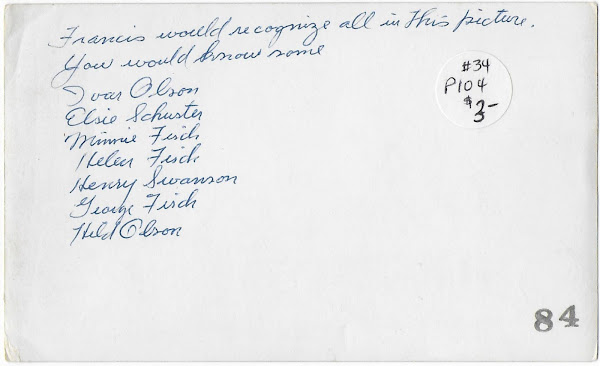 Francis would recognize all in this picture.
You would know some
Ivar Olson
Elsie Schuster
Minnie Fisch
Helen Fisch
Henry Swanson
George Fisch
Hild Olson
#34
P104
$3-
84